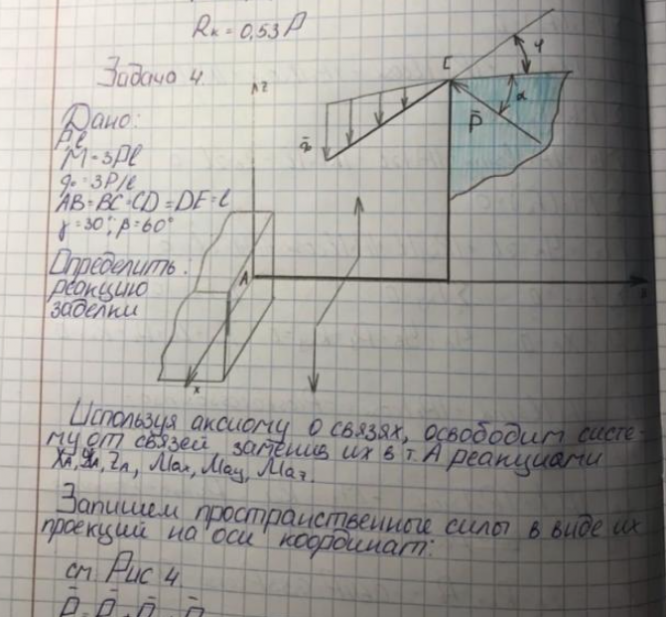 Rк = 0,53P
Задача 4.
Дано:
P, l
M = 3Pl
q = 3P/l
AB=BC=CD=DE=l
γ=30°; β=60°
Определить:
реакцию
заделки
z
C
φ
α
P̄
q̄
A
x
Используя аксиому о связях, освободим систе-
му от связей заменив их в т. A реакциями
Xа, Yа, Zа, Mах, Mау, Mаz.
Запишем пространственные силы в виде их
проекций на оси координат:
см. Рис 4.